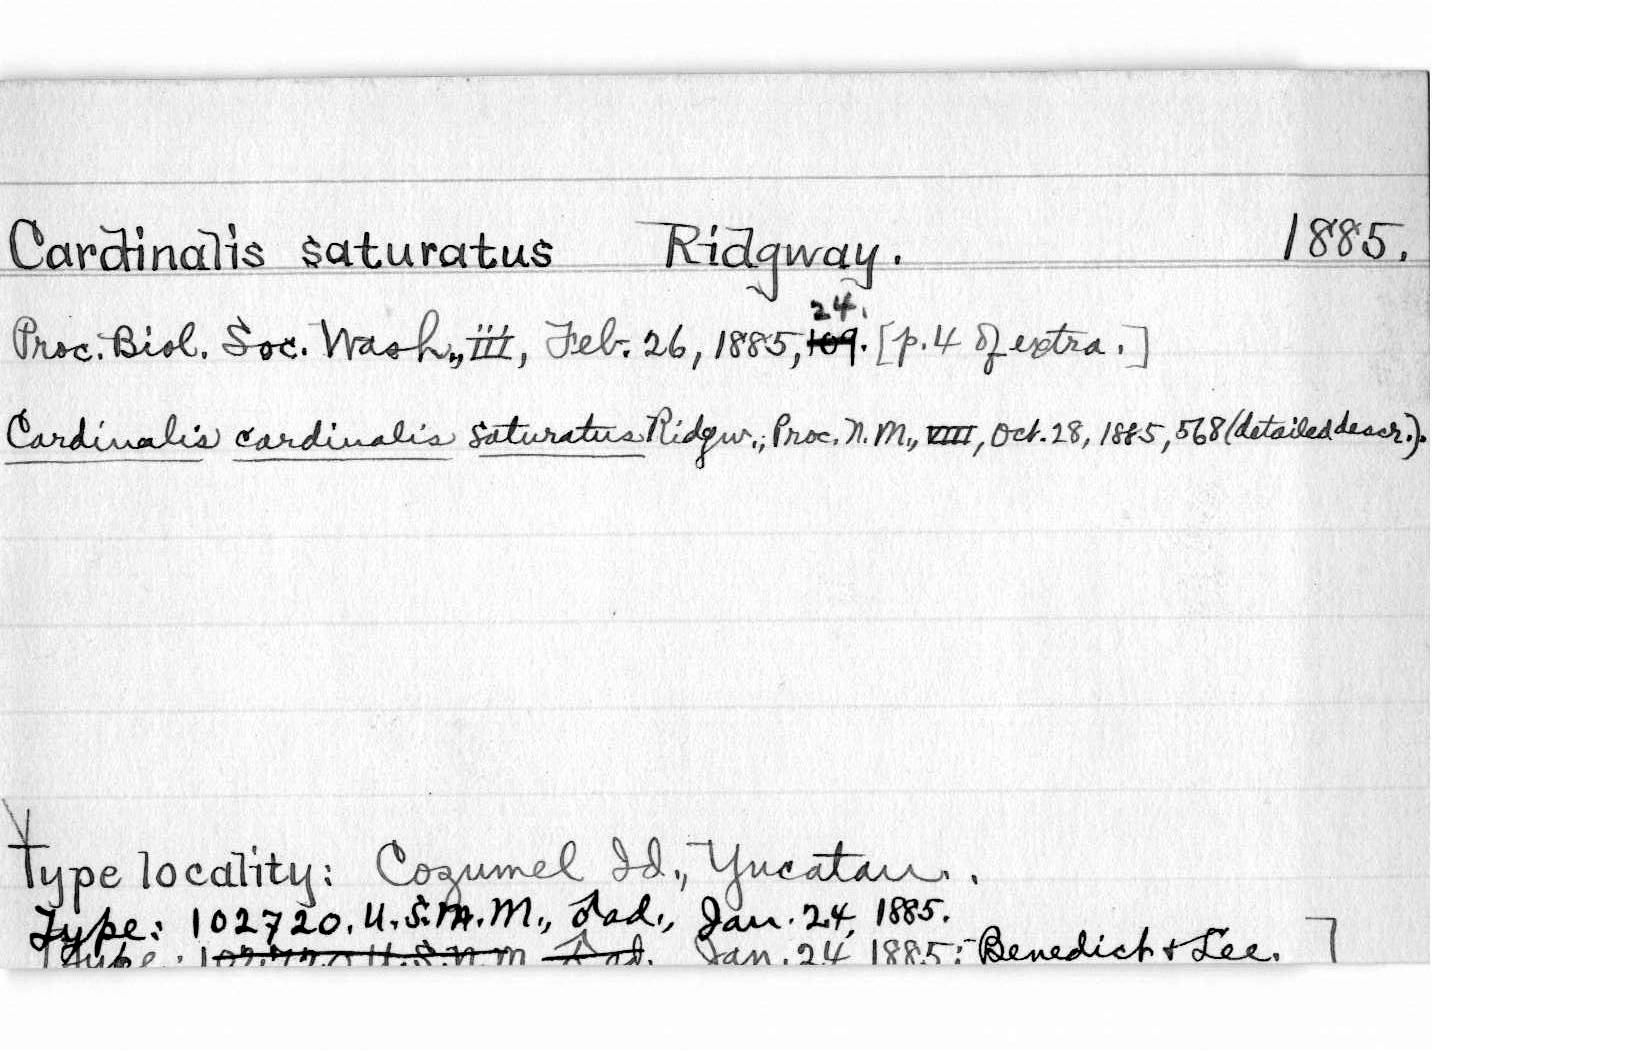 Cardinalis saturatus Ridgway. 1885.
24.
Proc. Biol. Soc. Wash., III, Feb. 26, 1885, 109. [p. 4 of extra.]
Cardinalis cardinalis saturatus Ridgw.; Proc. N. M., VIII, Oct. 28, 1885, 568 (detailed descr.).
Type locality: Cozumel Id., Yucatan..
Type: 102720. U.S.N.M., ♂ ad., Jan. 24, 1885.
Type: 102720 U.S.N.M ♂ ad. Jan. 24 1885; Benedict & Lee. ]